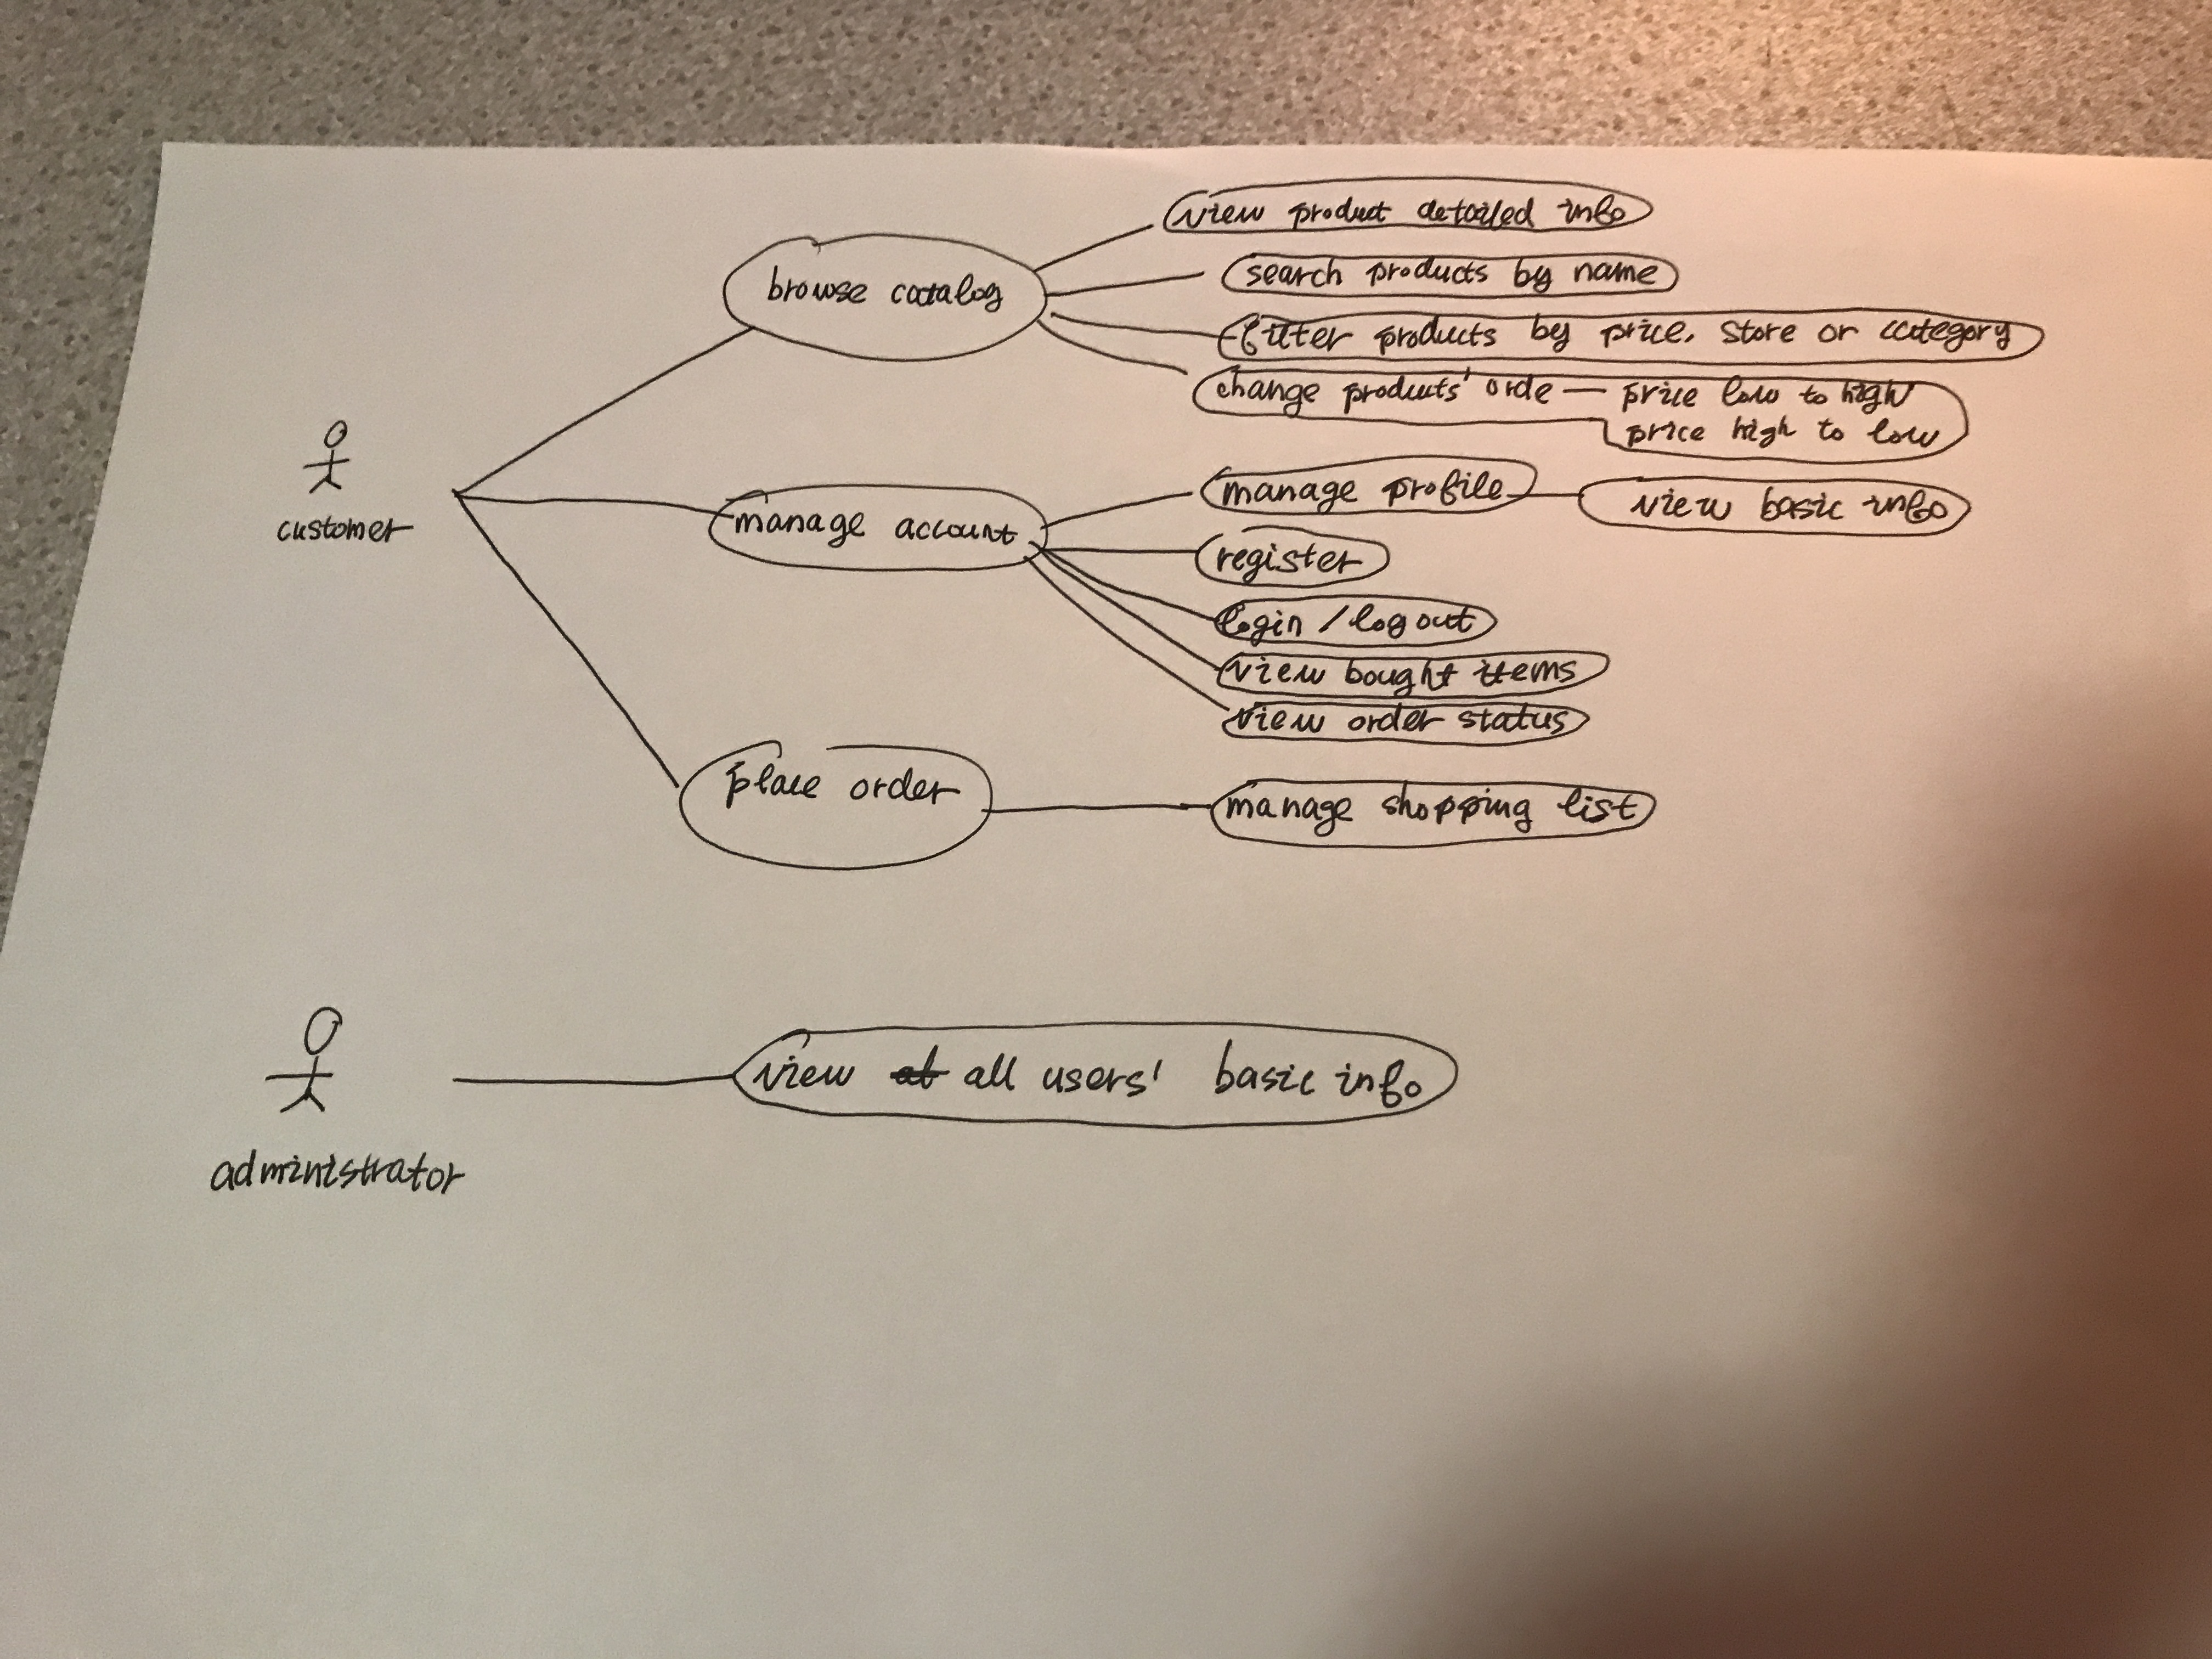 view product detailed info
browse catalog
search products by name
filter products by price, store or category
change products' orde — price low to high
price high to low
customer
manage account
manage profile
view basic info
register
login / log out
view bought items
view order status
place order
manage shopping list
view all users' basic info
administrator